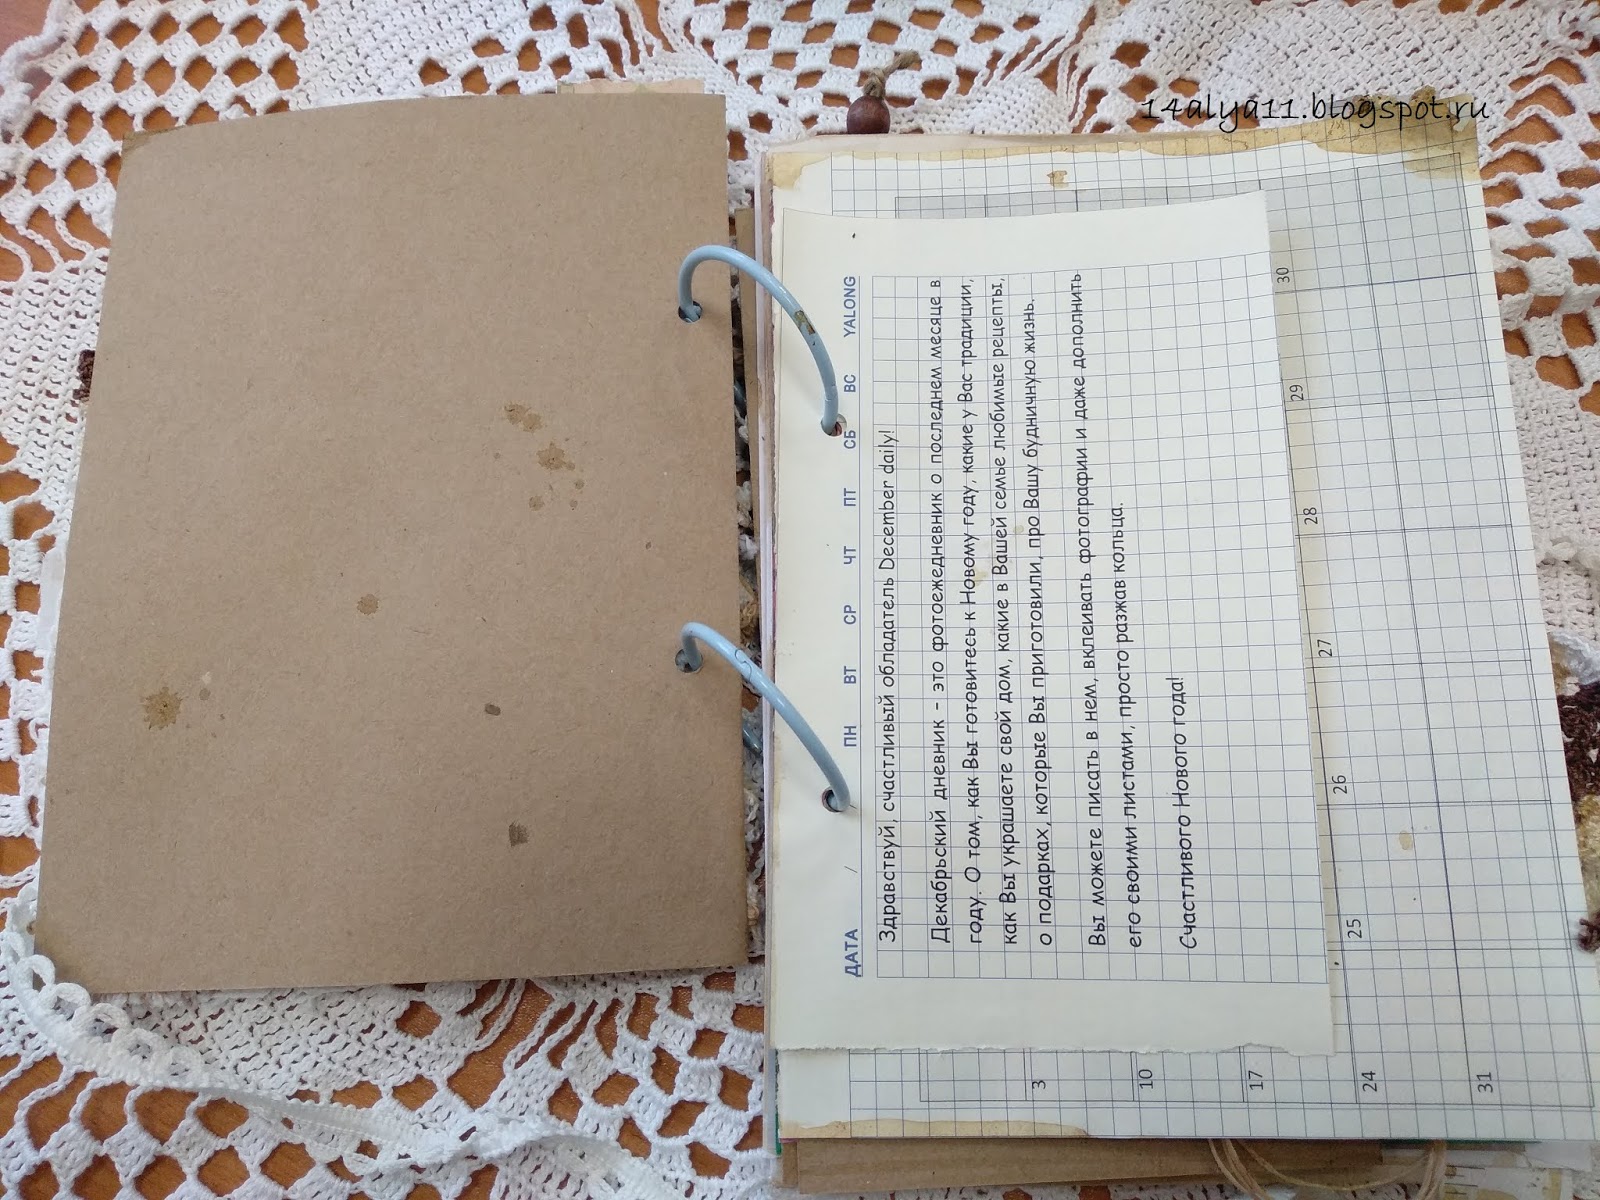 14alya11.blogspot.ru
ДАТА / ПН ВТ СР ЧТ ПТ СБ ВС YALONG
Здравствуй, счастливый обладатель December daily!
Декабрьский дневник - это фотоежедневник о последнем месяце в
году. О том, как Вы готовитесь к Новому году, какие у Вас традиции,
как Вы украшаете свой дом, какие в Вашей семье любимые рецепты,
о подарках, которые Вы приготовили, про Вашу будничную жизнь.
Вы можете писать в нем, вклеивать фотографии и даже дополнить
его своими листами, просто разжав кольца.
Счастливого Нового года!
3
10
17
24 25 26 27 28 29 30
31